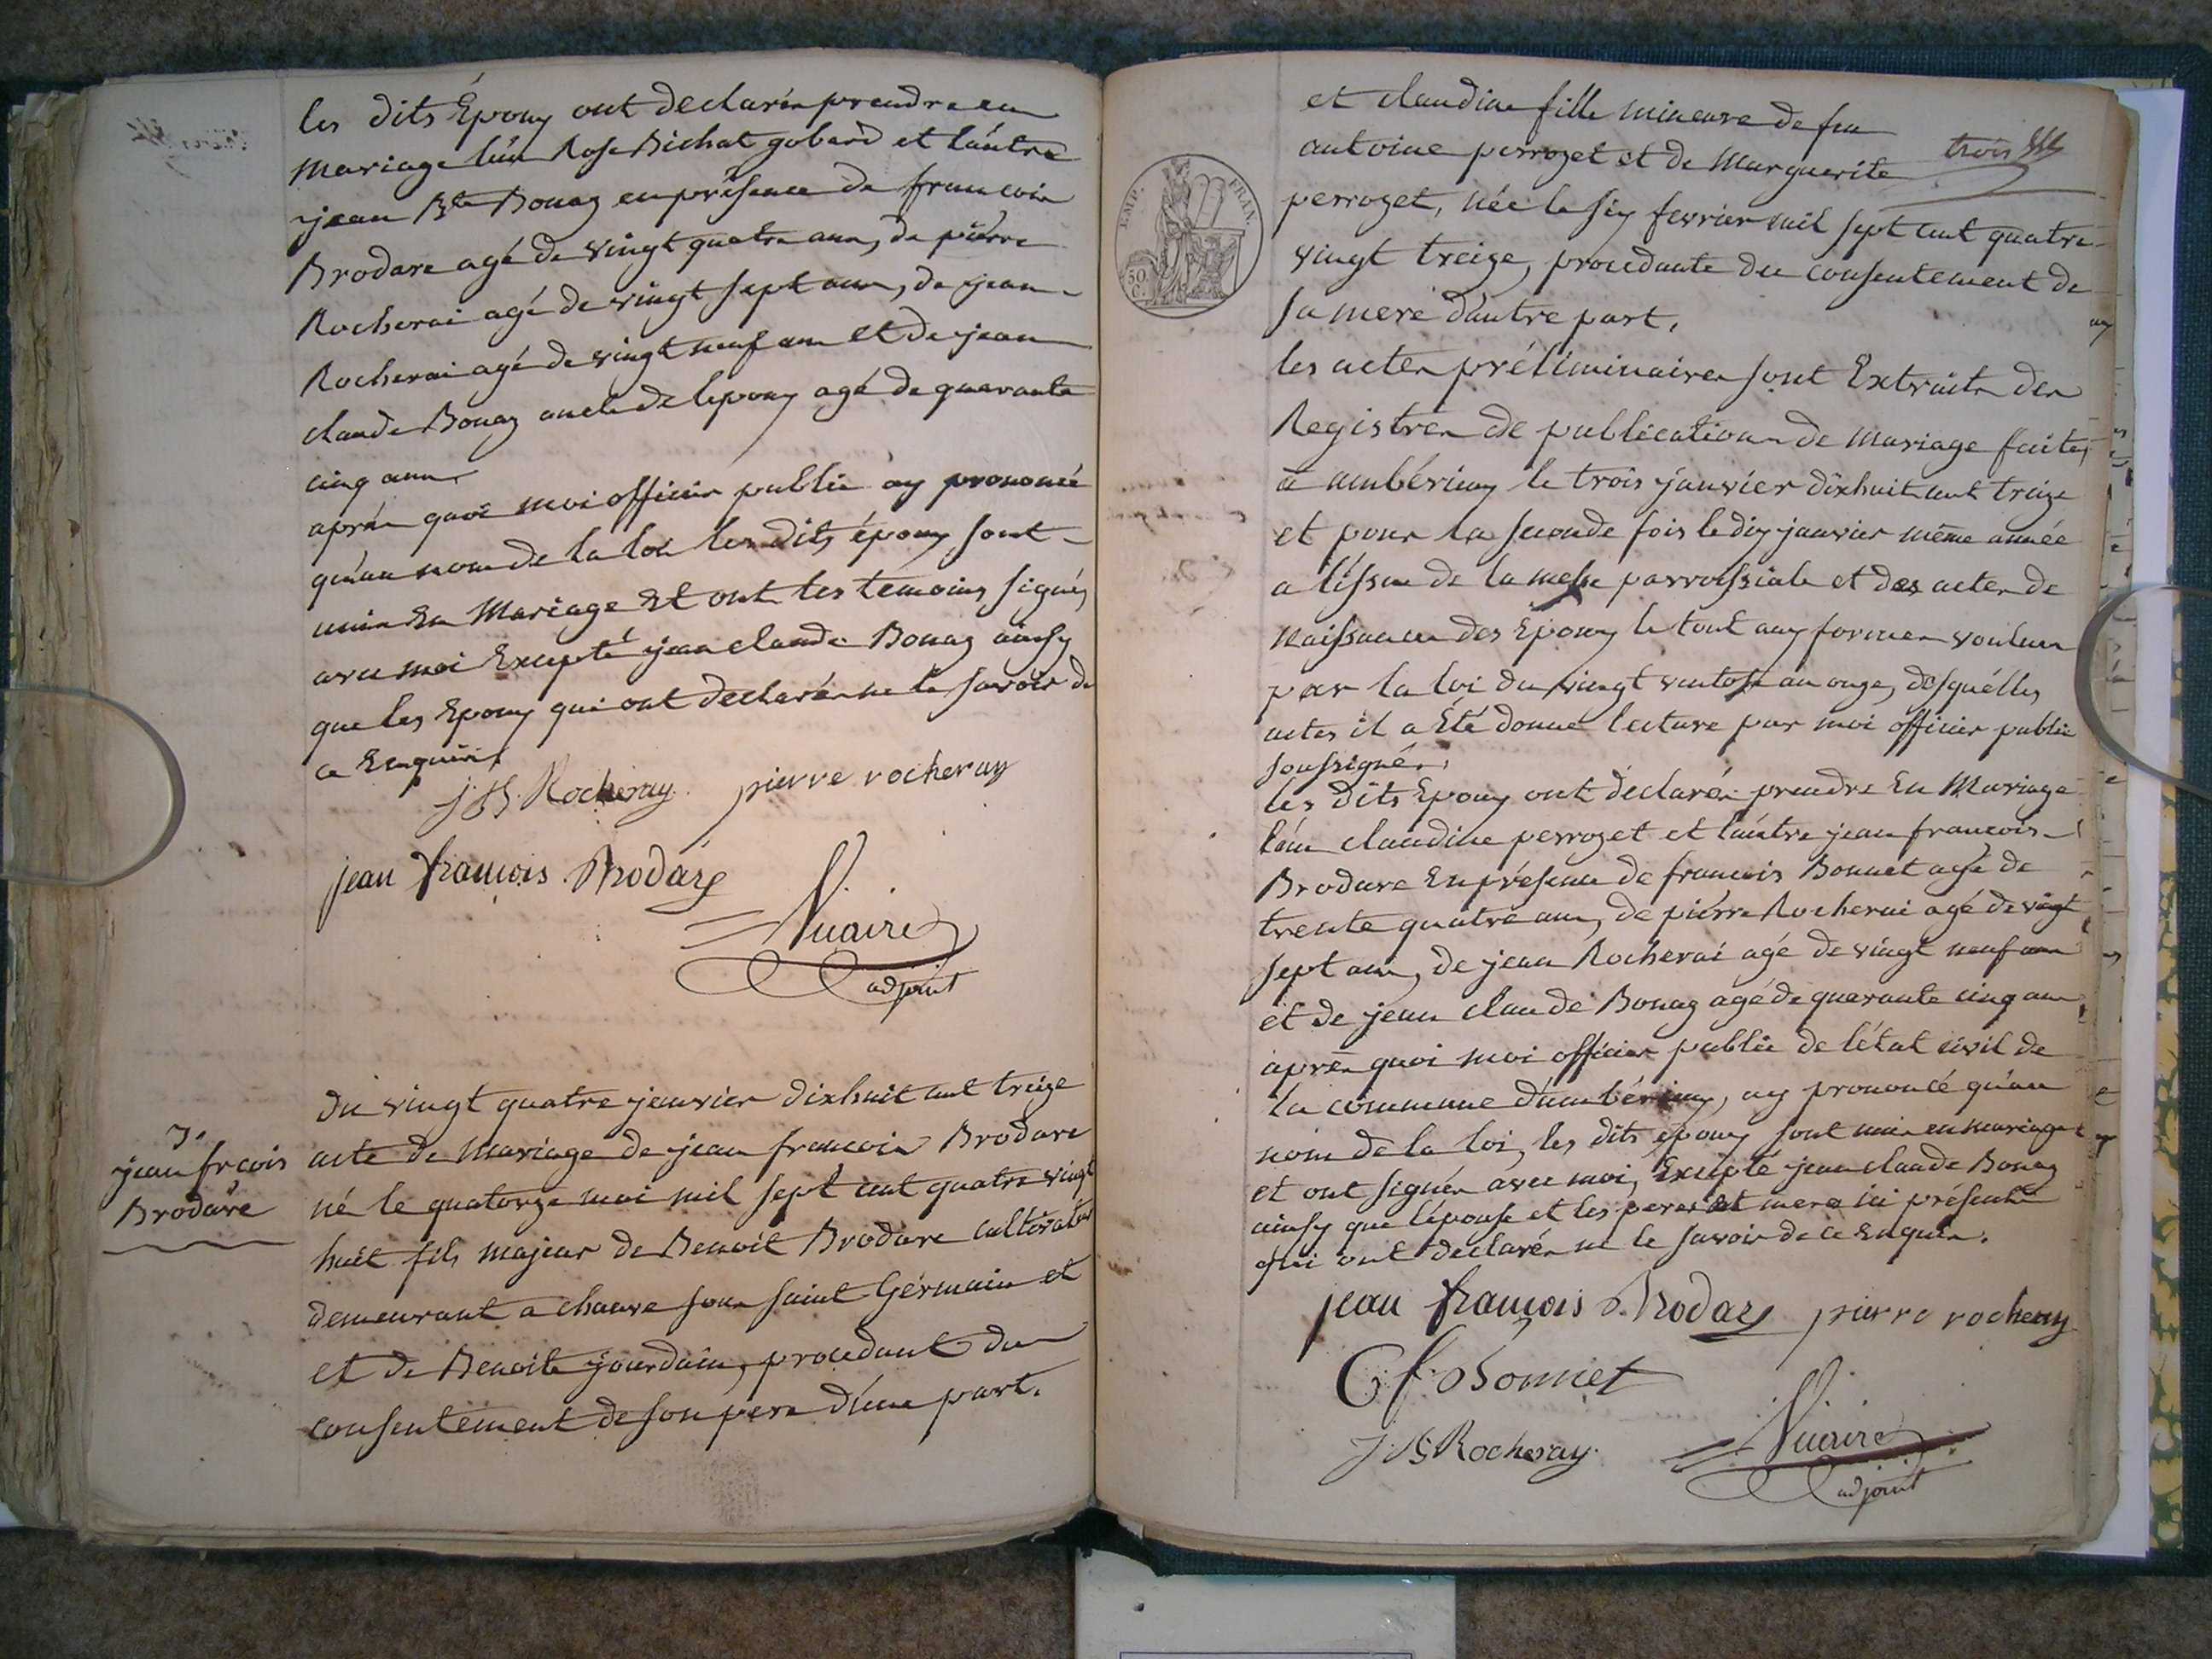 les dits Epoux ont declarés prendre en
mariage l'un Rose Bichat gobard et l'autre
jean Bte Bonaz en présence de francois
Brodare agé de vingt quatre ans, de pierre
Rocherai agé de vingt sept ans, de jean
Rocherai agé de vingt neuf ans et de jean
claude Bonaz oncle de lepoux agé de quarante
cinq ans.
aprés quoi moi officier public ay prononcé
qu'au nom de la loi les dits époux sont
unis En Mariage Et ont les temoins signés
avec moi Excepté jean claude Bonaz ainsy
que les Epoux qui ont declarés ne le savoir de
ce Enquéris
J B Rocheray pierre rocheray
jean francois Brodare
Nuaire
adjoint
du vingt quatre janvier dixhuit cent treize
3.
jean frcois
Brodare
acte de Mariage de jean francois Brodare
né le quatorze mai mil sept cent quatre vingt
huit fils majeur de Benoit Brodare cultivateur
demeurant a chaure sous saint Gérmain et
et de Benoite jourdain, procedant du
consentement de son pere d'une part.
et claudine fille mineure de feu
trois
antoine perrozet et de Marguerite
EMP. FRAN.
50 C.
perrozet, née le six fevrier mil sept cent quatre
vingt treize, procedante du consentement de
sa mere d'autre part,
les actes préliminaires sont Extraits des
Registres de publications de mariage faites
a ambérieux le trois janvier dixhuit cent treize
et pour la seconde fois le dix janvier même année
a l'issue de la messe parroissiale et des actes de
naissances des Epoux le tout aux formes voulues
par la loi du vingt ventose an onze, desquelles
actes il a été donné lecture par moi officier public
soussigné.
les dits Epoux ont déclarés prendre En Mariage
l'un claudine perrozet et l'autre jean francois
Brodare En présence de francois Bonnet agé de
trente quatre ans, de pierre Rocherai agé de vingt
sept ans, de jean Rocherai agé de vingt neuf ans
et de jean claude Bonaz agé de quarante cinq ans
aprés quoi moi officier public de l'état civil de
la commune d'ambérieux, ay prononcé qu'au
nom de la loi, les dits époux sont unis en mariage
et ont signés avec moi, Excepté jean claude Bonaz
ainsy que l'épouse et les peres et mere ici présents
qui ont declarés ne le savoir de ce Enquis.
jean francois Brodare pierre rocheray
C f Bonnet
J B Rocheray
Nuaire
adjoint